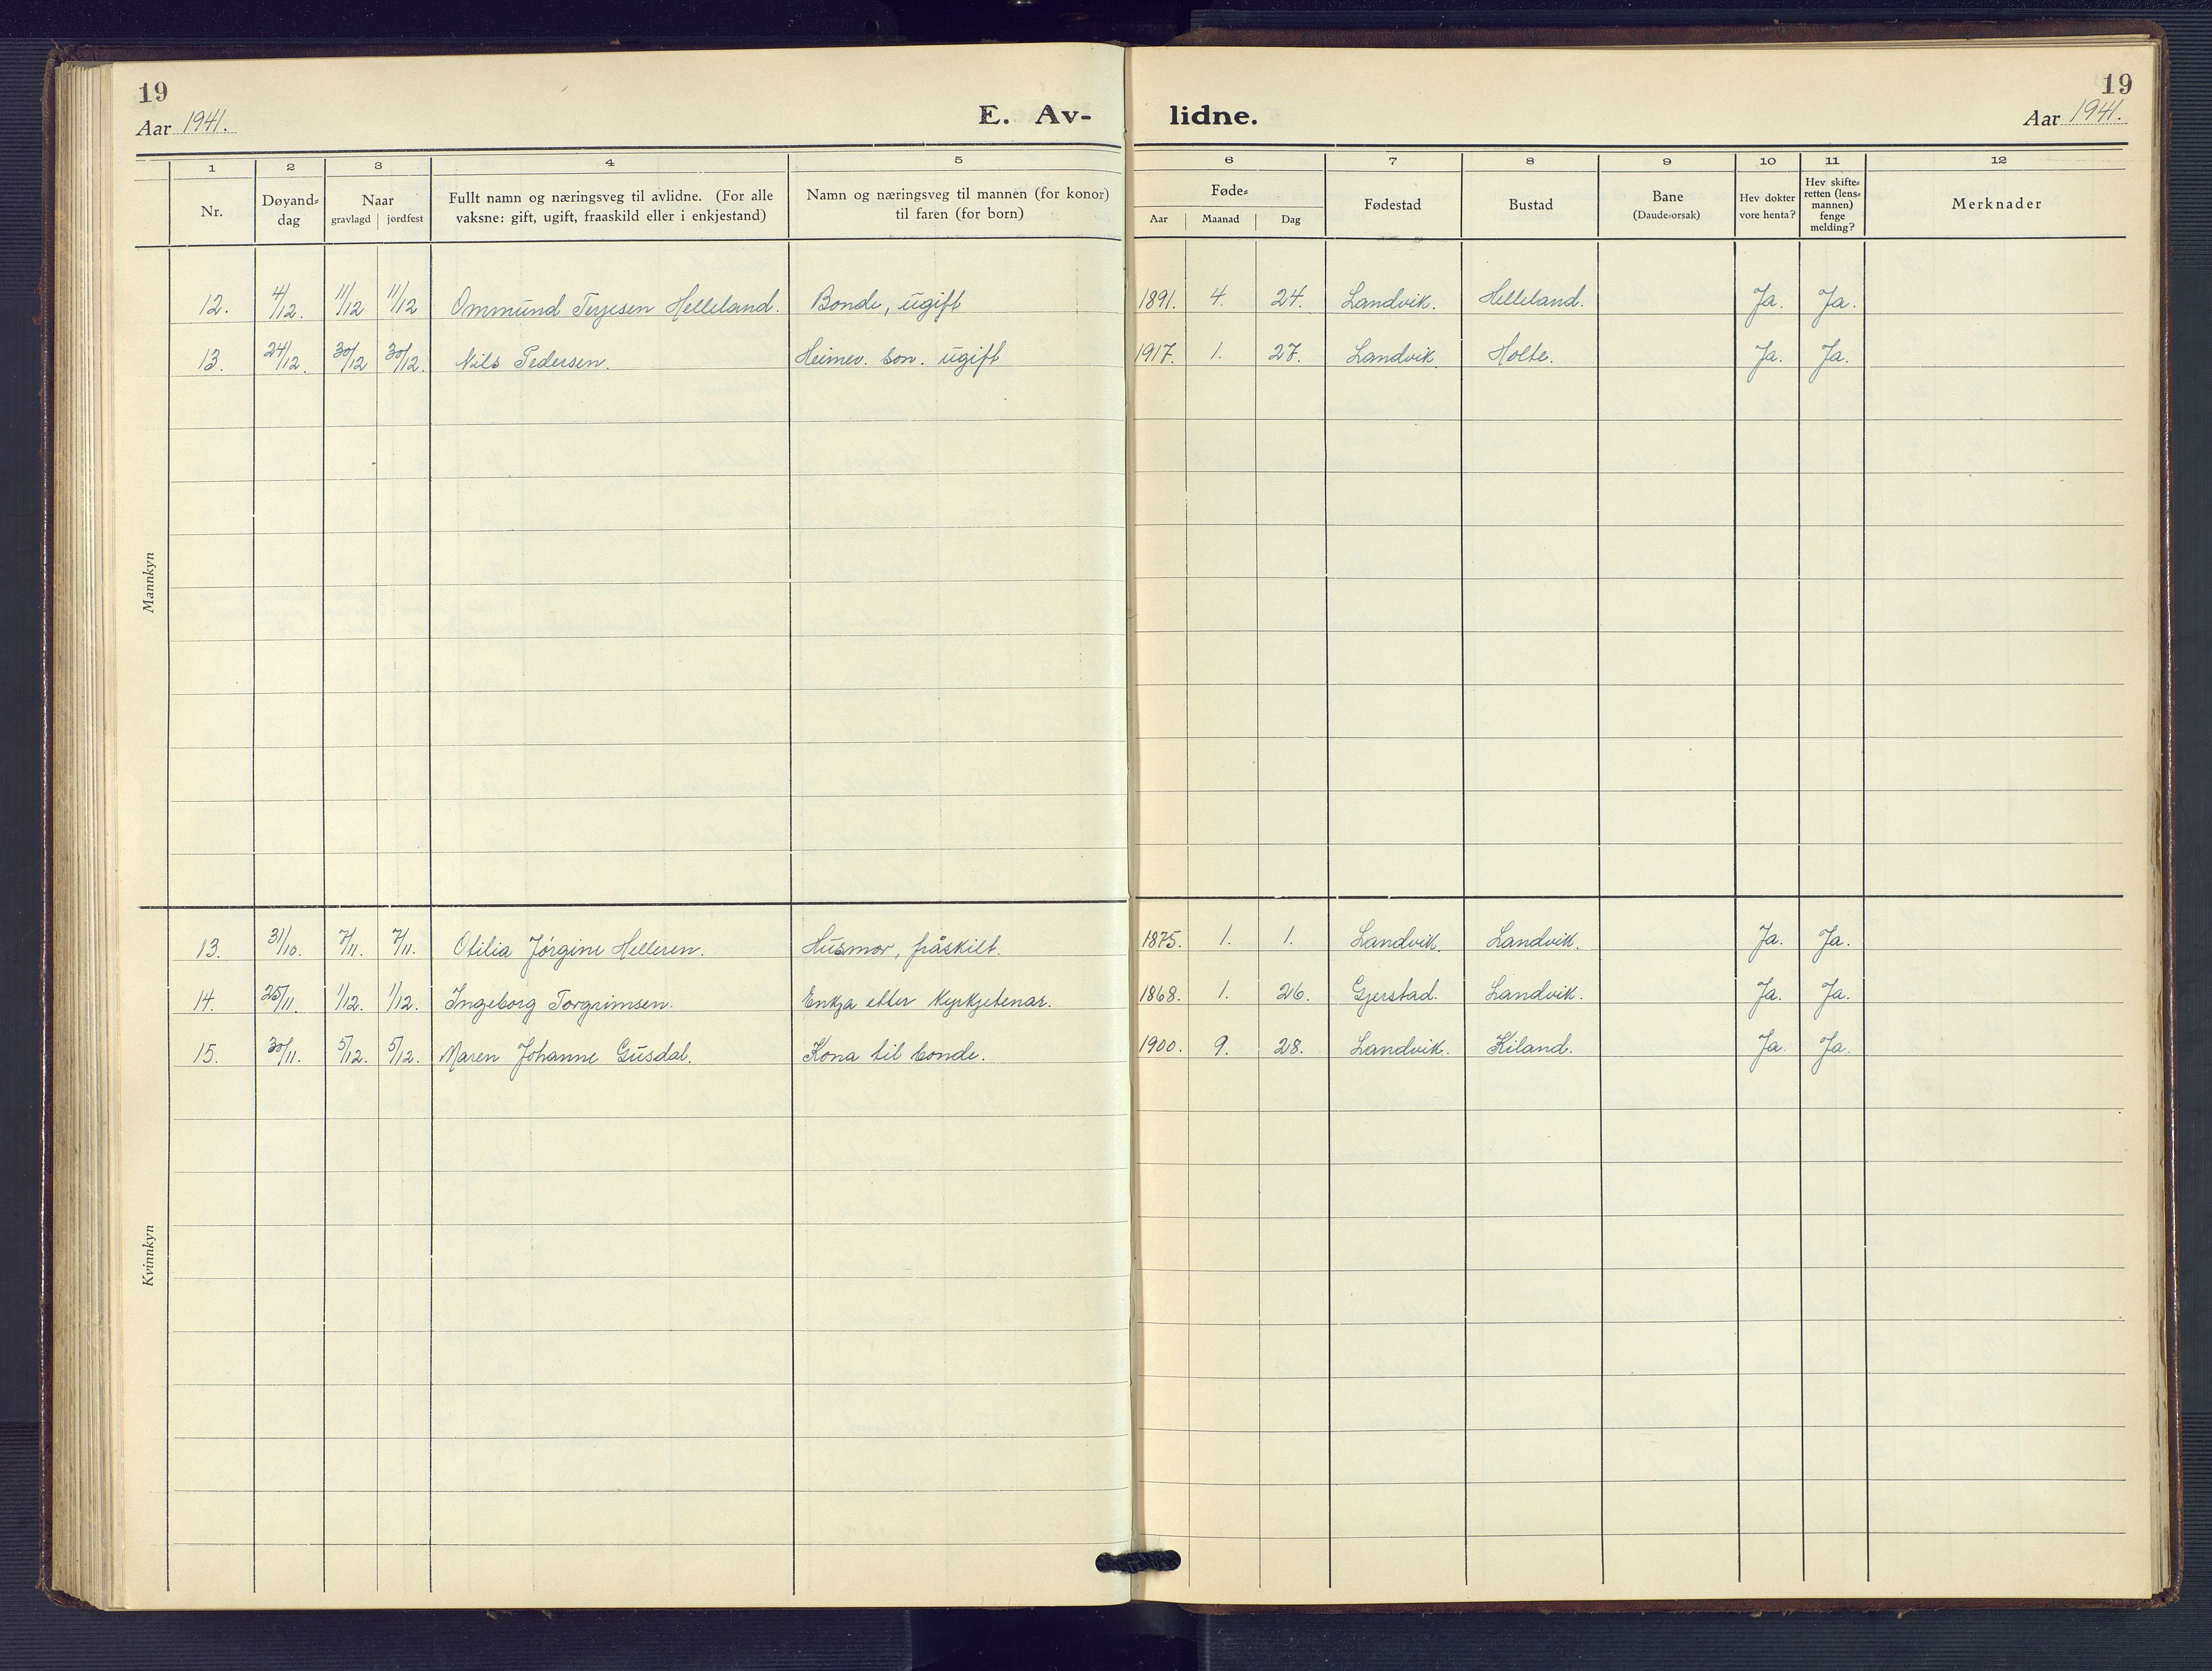 19
Aar 1941.
E. Av-
lidne.
19
Aar 1941.
1 2 3 4 5 6 7 8 9 10 11 12
Nr.
Døyand-
dag
Naar
gravlagd jordfest
Fullt namn og næringsveg til avlidne. (For alle
vaksne: gift, ugift, fraaskild eller i enkjestand)
Namn og næringsveg til mannen (for konor)
til faren (for born)
Føde-
Aar Maanad Dag
Fødestad
Bustad
Bane
(Daude-orsak)
Hev dokter
vore henta?
Hev skifte-
retten (lens-
mannen)
fenge
melding?
Merknader
Mannkyn
12. 4/12. 11/12 11/12 Ommund Terjesen Helleland. Bonde, ugift 1891. 4. 24. Landvik. Helleland. Ja. Ja.
13. 24/12. 30/12 30/12. Nils Pedersen. Heimev. son. ugift 1917. 1. 27. Landvik. Holte. Ja. Ja.
Kvinnkyn
13. 31/10. 7/11. 7/11. Otilia Jørgine Helleren. Husmor, fråskilt. 1875. 1. 1. Landvik. Landvik. Ja. Ja.
14. 25/11. 1/12. 1/12. Ingeborg Torgrimsen. Enkja etter kyrkjetenar. 1868. 1. 26. Gjerstad. Landvik. Ja. Ja.
15. 30/11. 5/12. 5/12. Maren Johanne Gusdal. Kona til bonde. 1900. 9. 28. Landvik. Kiland. Ja. Ja.